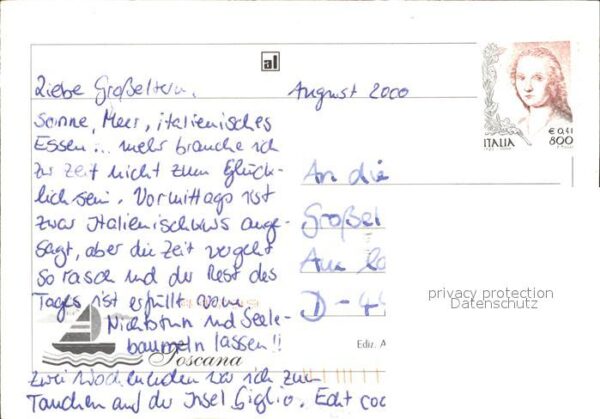 al
Liebe Großeltern,
August 2000
Sonne, Meer, italienisches
Essen... mehr brauche ich
zur Zeit nicht zum Glück-
lichsein. Vormittags ist
zwar Italienischkurs ange-
sagt, aber die Zeit vergeht
so rasch und der Rest des
Tages ist erfüllt vom
Nichtstun und Seele-
baumeln lassen!!
Toscana
Zwei Wochenenden war ich zum
Tauchen auf der Insel Giglio. Echt coo
ITALIA
€ 0,41
800
An die
Großel
Am
D-44
privacy protection
Datenschutz
Ediz. A